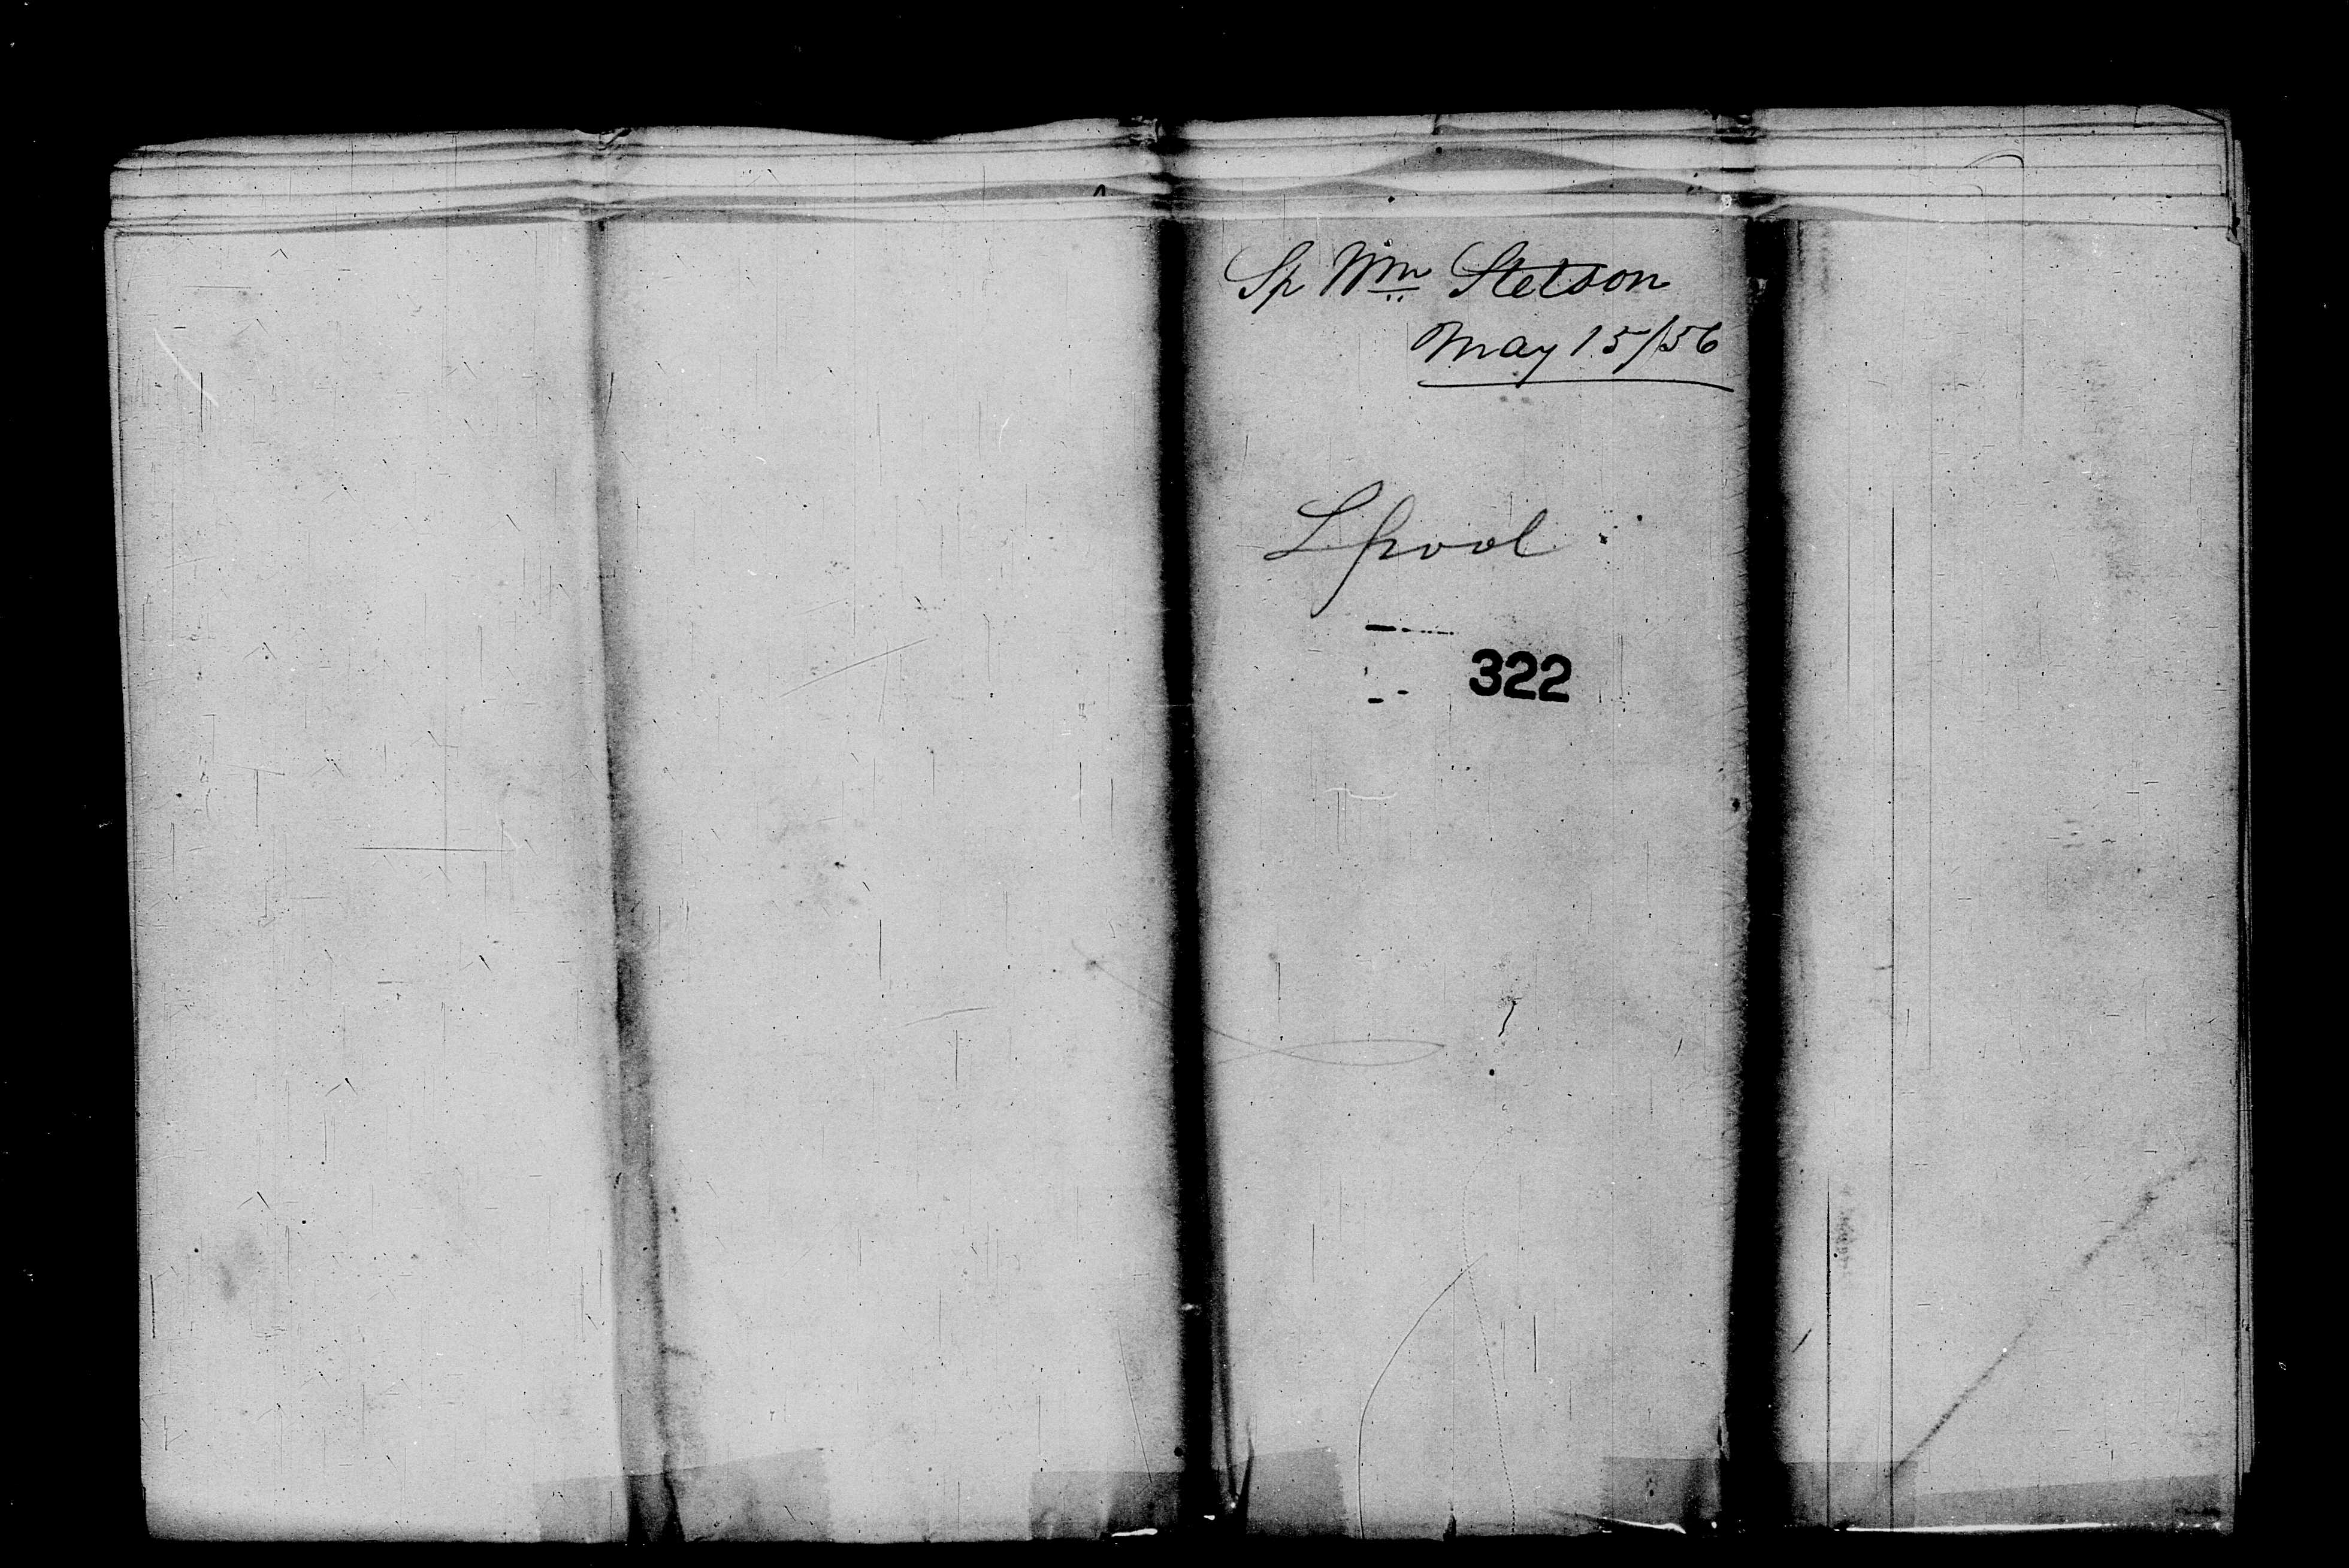 Sp Wm Stetson
May 15/56
Lpool
322